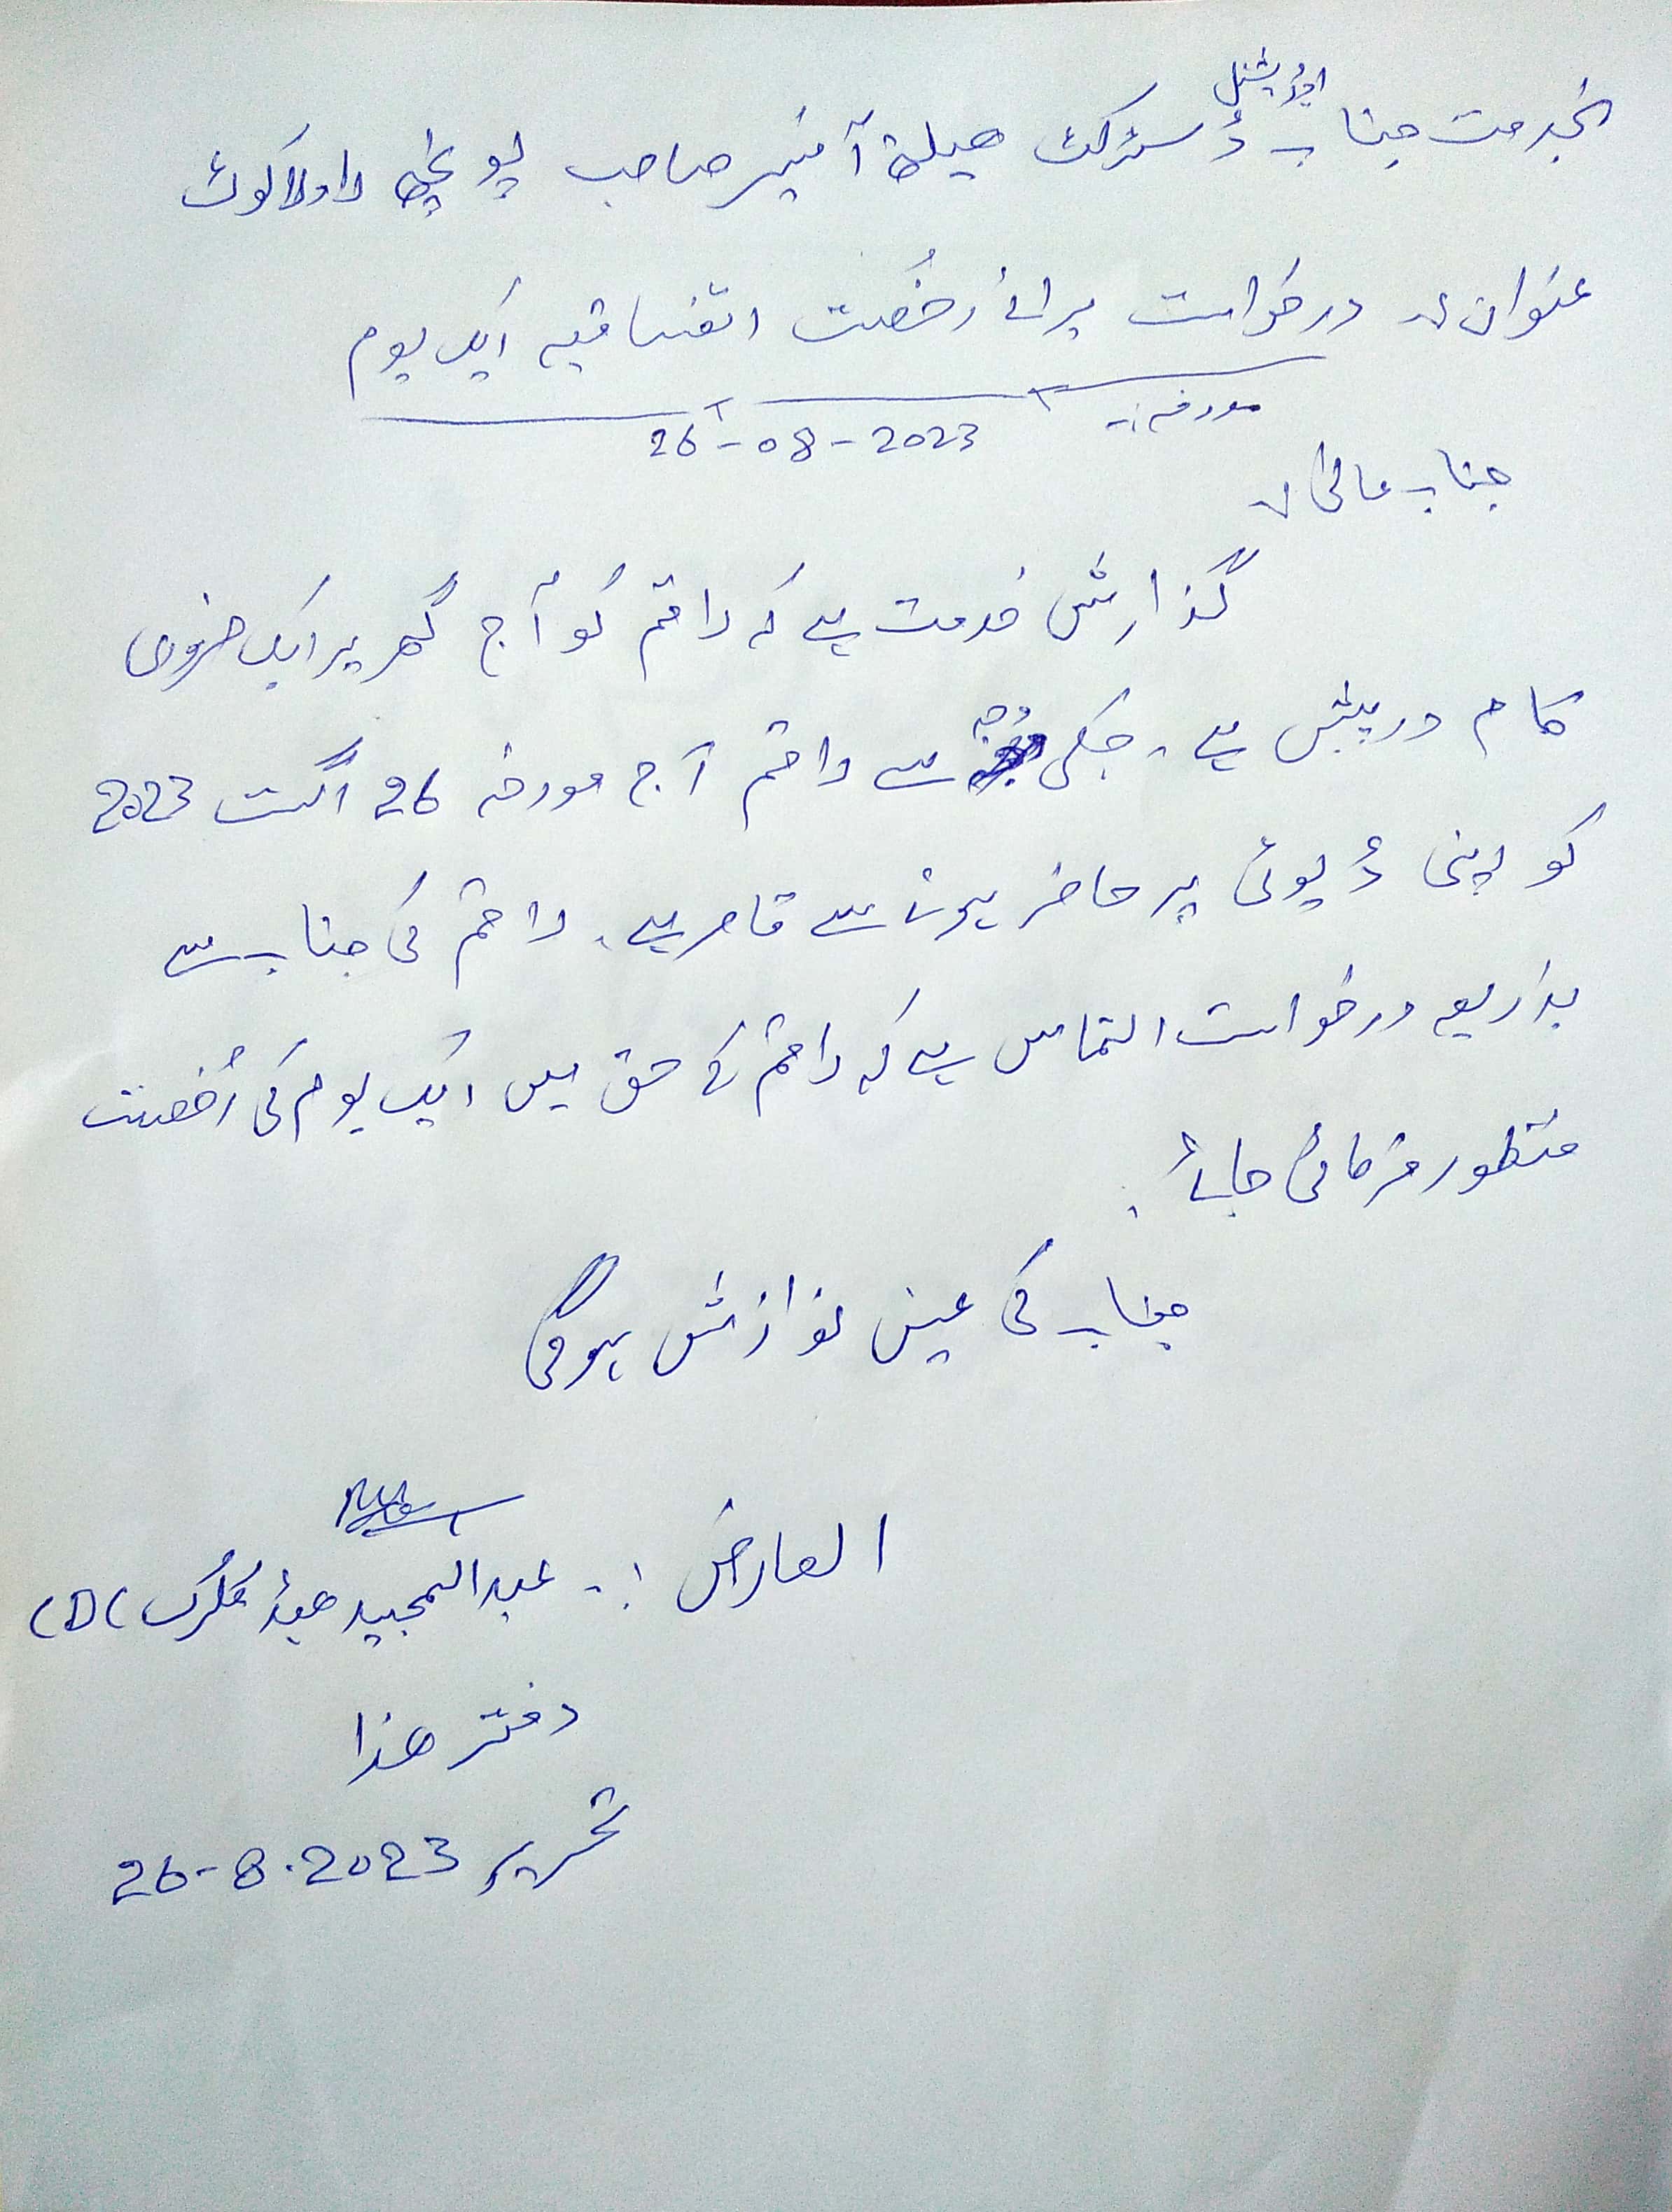 ایڈیشنل
بخدمت جناب ڈسٹرکٹ ھیلتھ آفیسر صاحب پونچھ راولاکوٹ
عنوان:۔ درخواست برائے رخصت اتفاقیہ ایک یوم
مورخہ:۔ 26-08-2023
جناب عالی!
گذارش خدمت ہے کہ راقم کو آج گھر پر ایک ضروری
کام درپیش ہے۔ جسکی وجہ سے راقم آج مورخہ 26 اگست 2023
کو اپنی ڈیوٹی پر حاضر ہونے سے قاصر ہے۔ راقم کی جناب سے
بذریعہ درخواست التماس ہے کہ راقم کے حق میں ایک یوم کی رُخصت
منظور فرمائی جائے۔
جناب کی عین نوازش ہوگی
العارض :۔ عبدالمجید ھیڈ کلرک (D)
دفتر ھذا
تحریر 26-8.2023